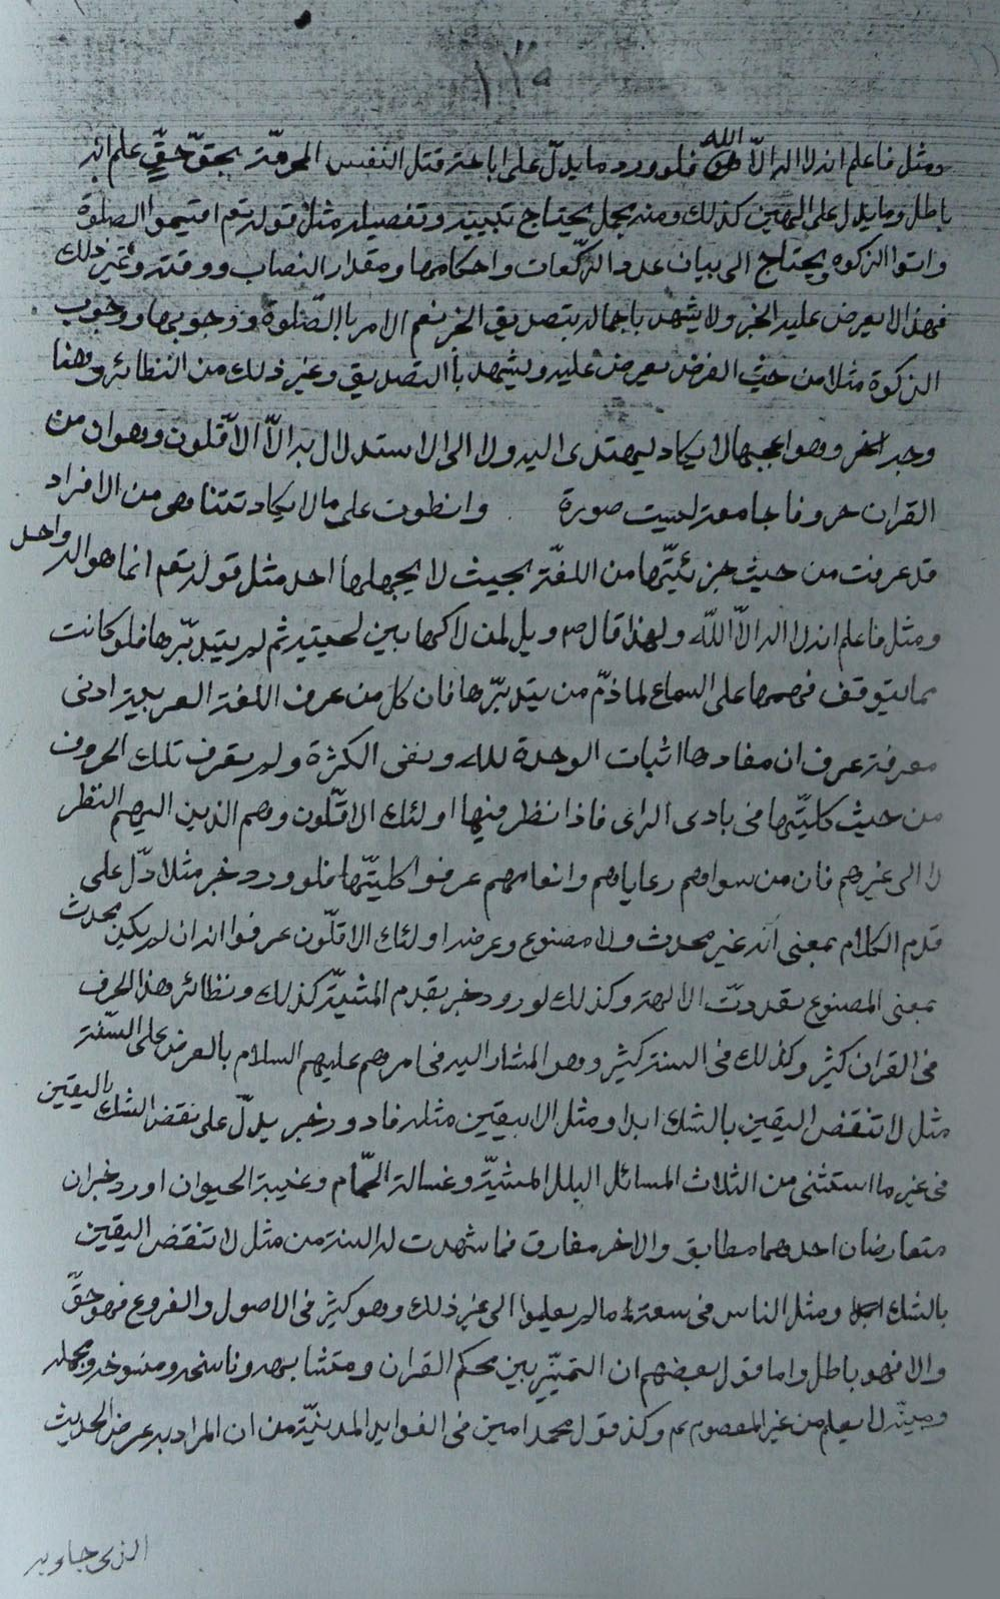 ١٣٠
ومثل فاعلم انه لا اله الّا الله فلو ورد ما يدلّ على اباحة قتل النفس المحرمّة بحقّ حقٍّ علم انه
باطل وما يدل على المهين كذلك ومنه مجمل يحتاج تبيينه وتفصيله مثل قوله تعم اقيموا الصلوة
واتوا الزكوة ويحتاج الى بيان عدد الركّعات واحكامها ومقدار النصاب ووقته وغير ذلك
فهذا لا يعرض عليه الخبر ولا يشهد باجماله بتصديق الخبر نعم الامر بالصّلوة ووجوبها ووجوب
الزكوة مثلا من حيث الفرض يعرض عليه ويشهد بالتصديق وغير ذلك من النظائر وهنا
وجه اخر وهو اعجبها لا يكاد يهتدى اليه ولا الى الاستدلال به الّا الاقّلون وهو ان من
القران حروفا جامعة ليست صورة وانطوت على ما لا يكاد تتناهى من الافراد
قد عرفت من حيث جزئيّتها من اللغّة بحيث لا يجهلها احد مثل قوله تعم انما هو اله واحد
ومثل فاعلم انه لا اله الّا اللّه ولهذا قال ص ويل لمن لاكها بين لحيتيه ثم لم يتدبّرها فلو كانت
مما يتوقف فهمها على السماع لما ذمّ من يتدبّرها فان كل من عرف اللغة العربية ادنى
معرفة عرف ان مفادها اثبات الوحدة لله ونفى الكثرة ولم يعرف تلك الحروف
من حيث كليّتها فى بادى الراى فاذا نظر فيها اولئك الاقّلون وهم الذين اليهم النظر
لا الى غيرهم فان من سواهم رعاياهم وانعامهم عرفوا كليّتها فلو ورد خبر مثلا دلّ على
قدم الكلام بمعنى انّه غير محدث ولا مصنوع وعرضه اولئك الاقلّون عرفوا انه ان لم يكن محدث
بمعنى المصنوع تعددتّ الالهة وكذلك لو ورد خبر بقدم المشيّة كذلك ونظائر هذا الحرف
فى القران كثير وكذلك فى السنة كثير وهو المشار اليه فى امرهم عليهم السلام بالعرض على السّنة
مثل لا تنقض اليقين بالشك ابدا ومثل الا بيقين مثله فاذ ورد خبر يدلّ على نقض الشك باليقين
فى غير ما استثنى من الثلاث المسائل البلل المشتبه وغسالة الحمّام وغيبة الحيوان او رد خبران
متعارضان احدهما مطابق والاخر مفارق فما شهدت له السنة من مثل لا تنقض اليقين
بالشك ومثل الناس فى سعة ما لم يعلموا الى غير ذلك وهو كثير فى الاصول والفروع فهو حقّ
والا فهو باطل واما قول بعضهم ان التمييز بين محكم القران ومتشابهه وناسخه ومنسوخه ومجمله
ومبينّه لا يعلم من غير المعصوم عم وكذ قول محمد امين فى الفوايد المدنيّة من ان المراد به عرض الحديث
الذى جاء به